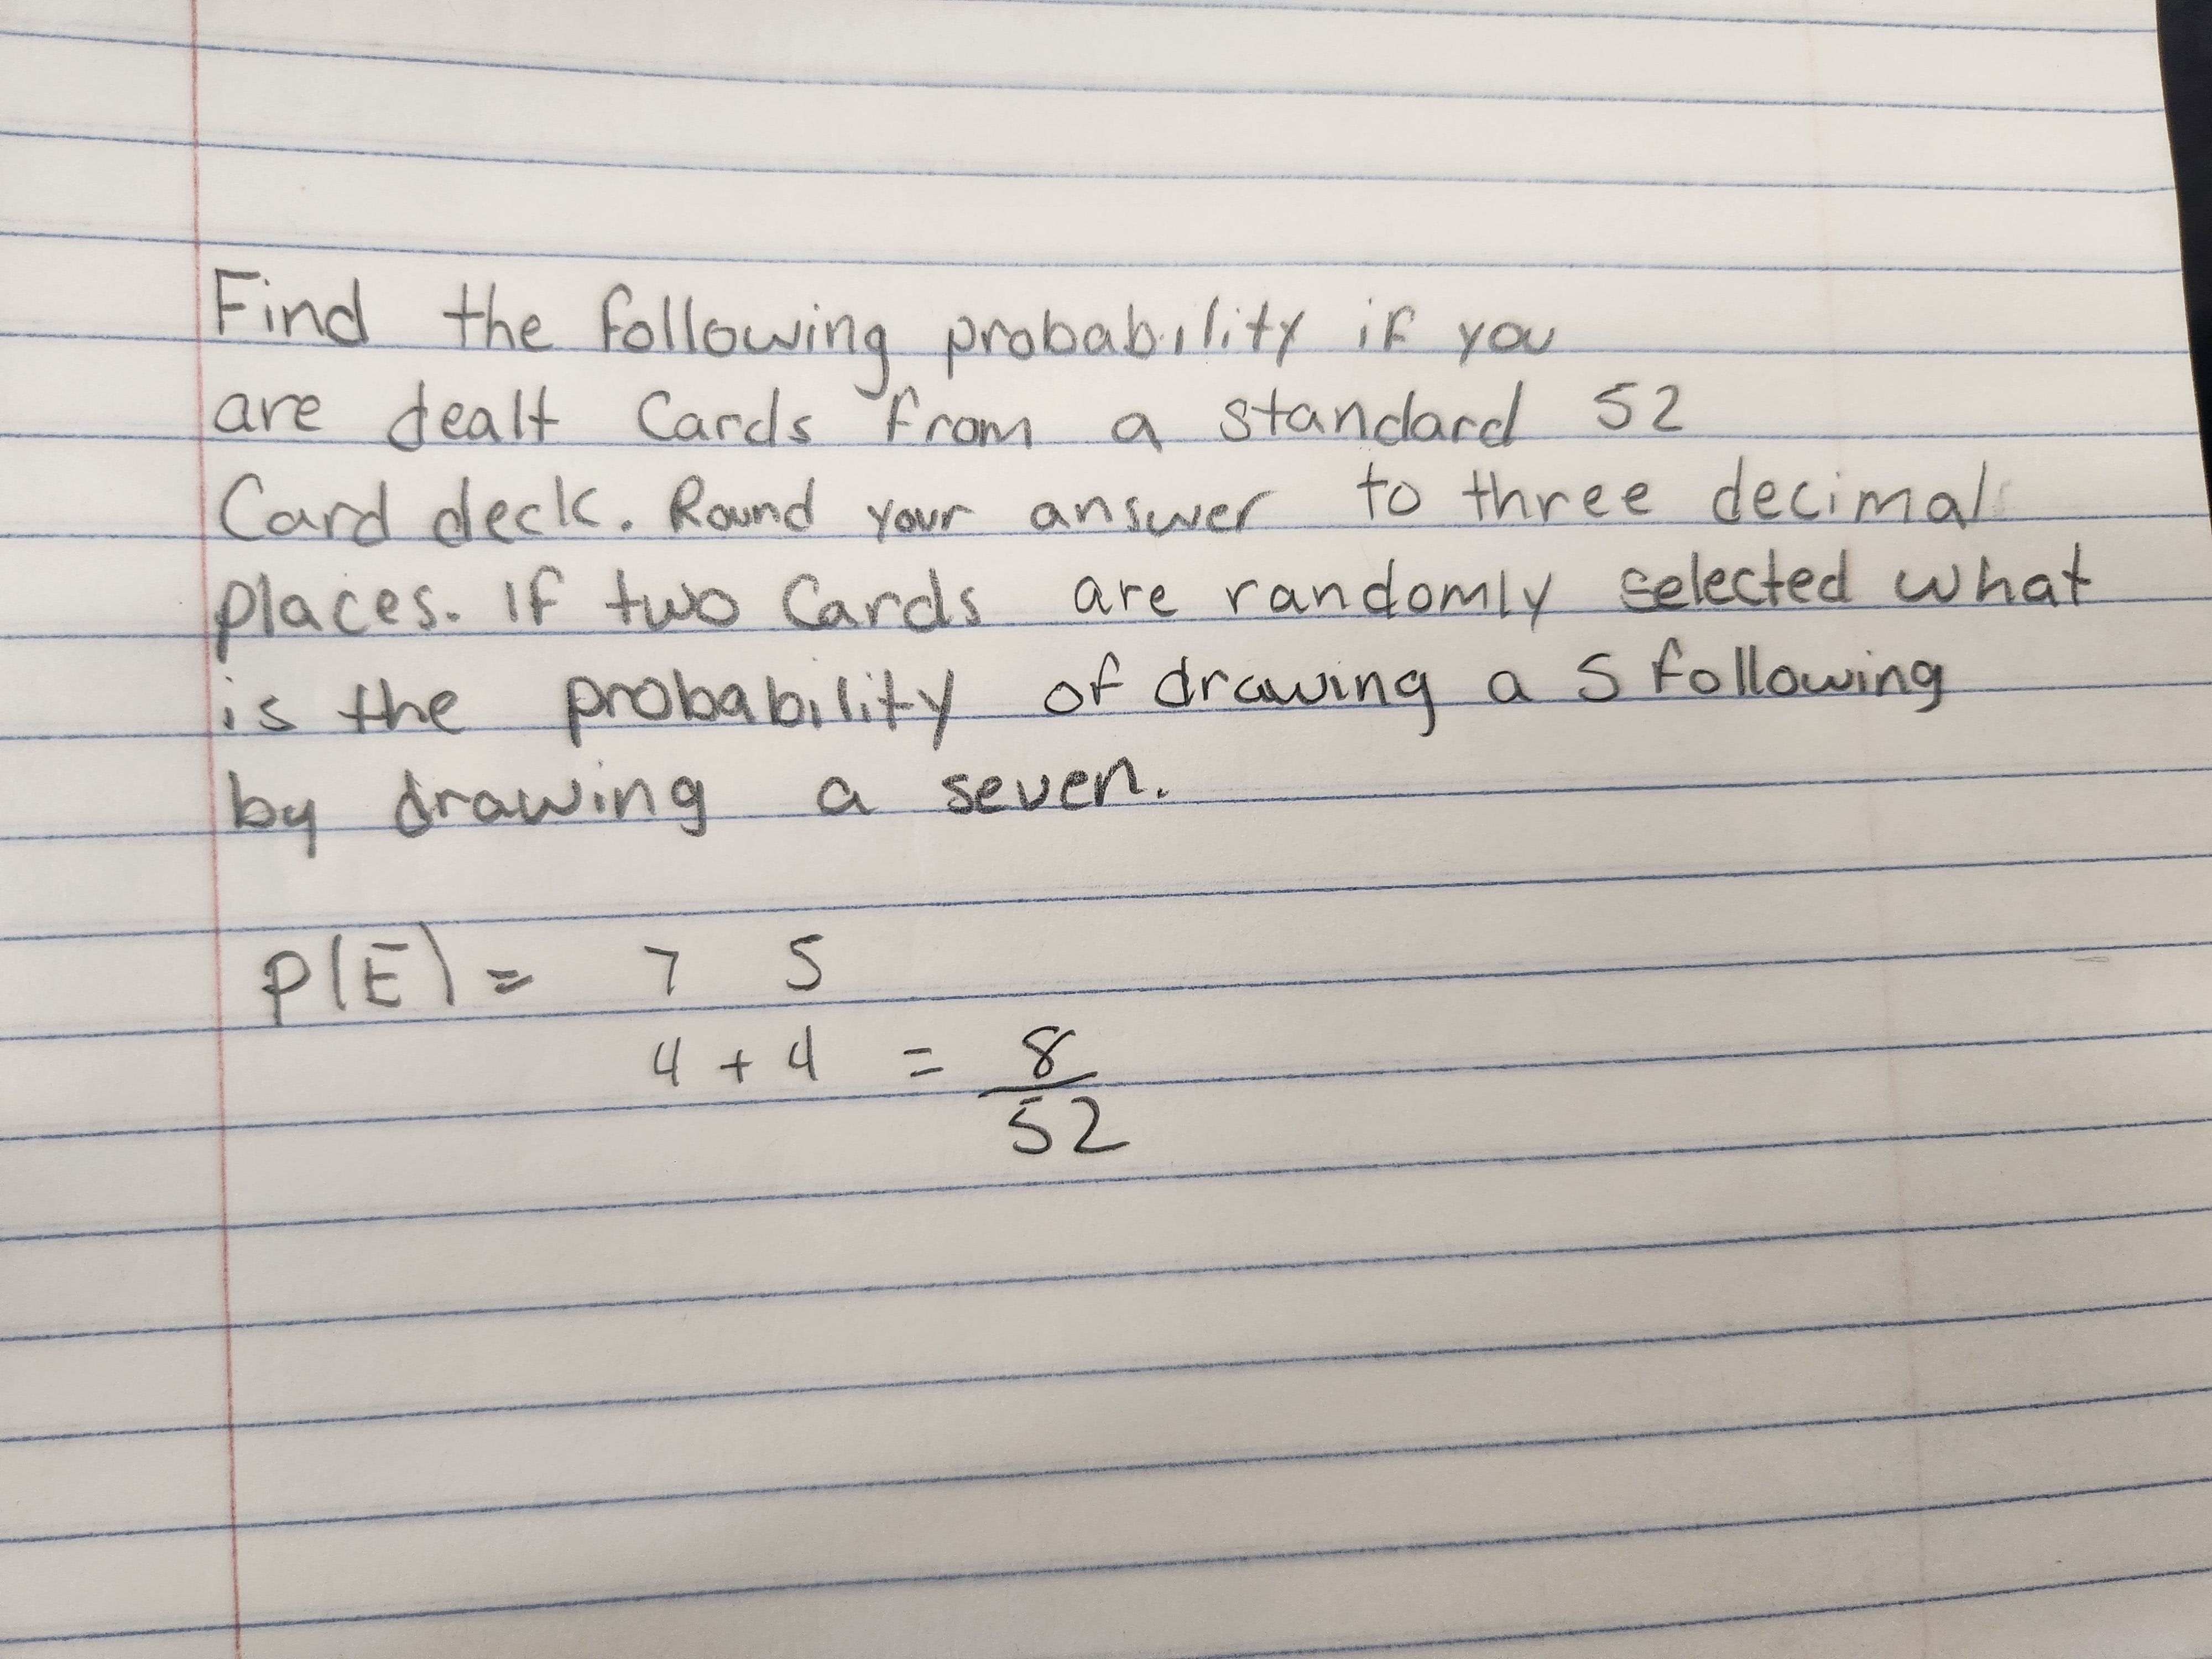 Find the following probability if you
are dealt Cards from a standard 52
Card deck. Round your answer to three decimal
places. If two Cards are randomly selected what
is the probability of drawing a 5 following
by drawing a seven.
P(E) = 7 5
4 + 4 = 8/52